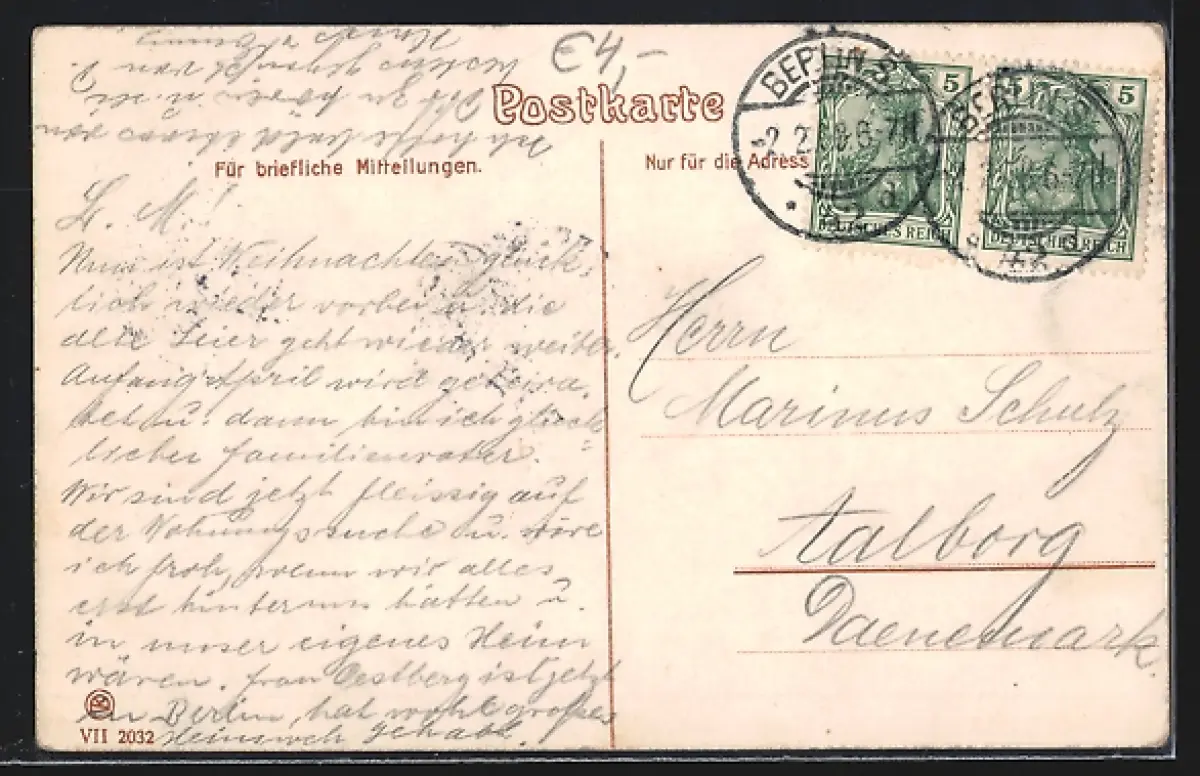 €4,-
Postkarte
Für briefliche Mitteilungen.
Nur für die Adress
BERLIN S
2.2. 6-7N
d
5
DEUTSCHES REICH
BERLIN
6-7N
d
5
DEUTSCHES REICH
L. M.!
Nun ist Weihnachten glück-
lich wieder vorbei u. die
alte Leier geht wieder weiter.
Anfang April wird geheira-
tet u. dann bin ich glück-
licher Familienvater.
Wir sind jetzt fleissig auf
der Wohnungssuche u. wäre
ich froh, wenn wir alles
erst hinter uns hätten u.
in unser eigenes Heim
wären. Frau Oestberg ist jetzt
in Berlin, hat wohl grosses
Heimweh gehabt.
Ich hoffe bald etwas von
von
Herrn
Marinus Schulz
Aalborg
Daenemark
VII 2032